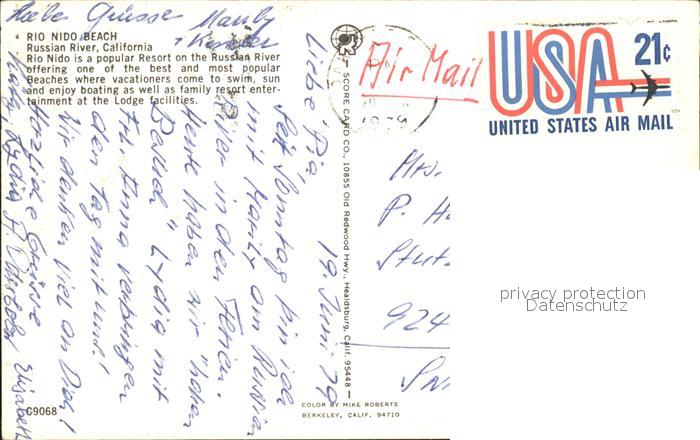 Liebe Grüsse Marily
+ Kinder
RIO NIDO BEACH
Russian River, California
Rio Nido is a popular Resort on the Russian River
offering one of the best and most popular
Beaches where vacationers come to swim, sun
and enjoy boating as well as family resort enter-
tainment at the Lodge facilities.
19. Juni 79
Liebe Pia,
Seit Sonntag bin ich
mit Marily am Russian
River in den Ferien.
Heute haben wir "hohen
Besuch" Lydia mit
Frl. Anna verbringen
den Tag mit uns!
Wir denken viel an Dich!
Herzliche Grüsse
Lydia
Elisabeth
C9068
SCORE CARD CO., 10855 Old Redwood Hwy., Healdsburg, Calif. 95448
COLOR BY MIKE ROBERTS
BERKELEY, CALIF. 94710
Air Mail
1979
USA 21c
UNITED STATES AIR MAIL
Mrs.
P. H
924
privacy protection
Datenschutz